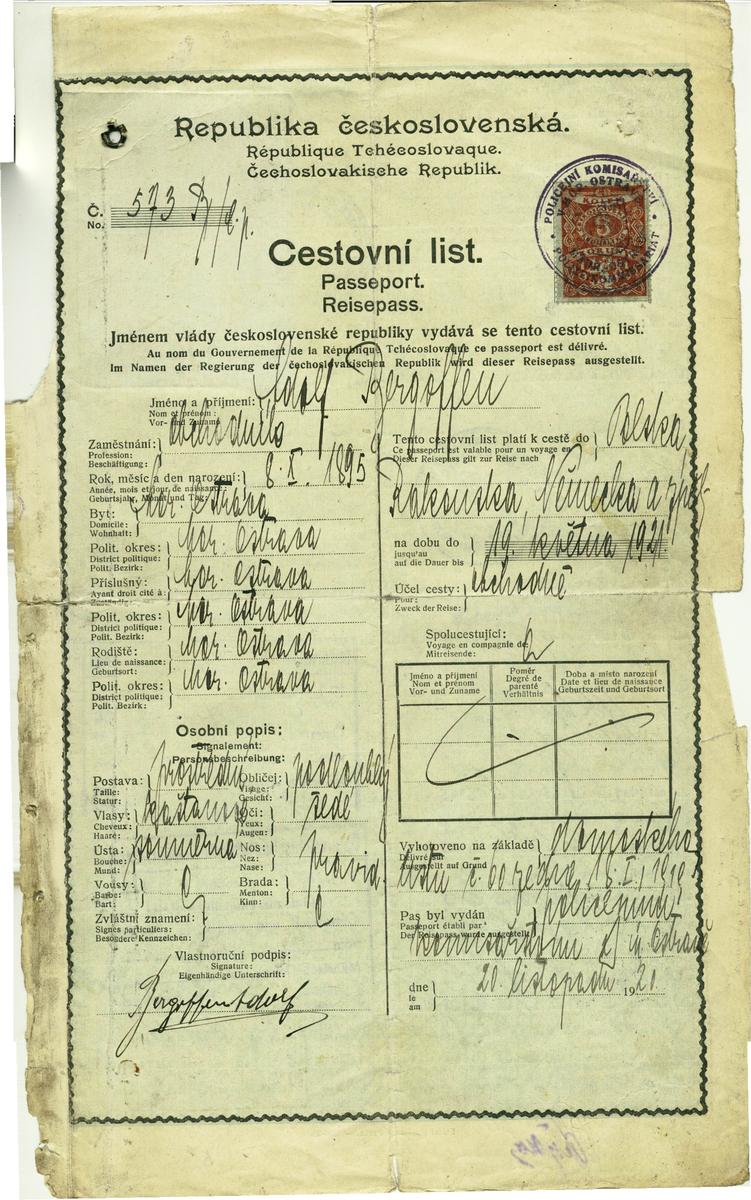 Republika československá.
République Tchécoslovaque.
Čechoslovakische Republik.
Č. 573
No.
POLICEJNÍ KOMISAŘSTVÍ
V MOR. OSTRAVĚ
POLIZEIKOMMISSARIAT
5
Cestovní list.
Passeport.
Reisepass.
Jménem vlády československé republiky vydává se tento cestovní list.
Au nom du Gouvernement de la République Tchécoslovaque ce passeport est délivré.
Im Namen der Regierung der čechoslovakischen Republik wird dieser Reisepass ausgestellt.
Jméno a příjmení: Adolf Bergoffen
Nom et prénom:
Vor- und Zuname
Zaměstnání: obchodník
Profession:
Beschäftigung:
Rok, měsíc a den narození: 8. X. 1895
Année, mois et jour de naissance:
Geburtsjahr, Monat und Tag:
Byt: Mor. Ostrava
Domicile:
Wohnhaft:
Polit. okres: Mor. Ostrava
District politique:
Polit. Bezirk:
Příslušný: Mor. Ostrava
Ayant droit cité à:
Polit. okres: Mor. Ostrava
District politique:
Polit. Bezirk:
Rodiště: Mor. Ostrava
Lieu de naissance:
Geburtsort:
Polit. okres: Mor. Ostrava
District politique:
Polit. Bezirk:
Osobní popis:
Signalement:
Personsbeschreibung:
Postava: prostřední
Taille:
Statur:
Obličej: podlouhlý
Visage:
Gesicht:
Vlasy: kaštanové
Cheveux:
Haare:
Oči: šedé
Yeux:
Augen:
Ústa: souměrná
Bouche:
Mund:
Nos: pravid.
Nez:
Nase:
Vousy:
Barbe:
Bart:
Brada:
Menton:
Kinn:
Zvláštní znamení:
Signes particuliers:
Besondere Kennzeichen:
Vlastnoruční podpis:
Signature:
Eigenhändige Unterschrift:
Bergoffen Adolf
Tento cestovní list platí k cestě do Polska
Ce passeport est valable pour un voyage en
Dieser Reisepass gilt zur Reise nach
Rakouska, Německa a zpět
na dobu do 19. května 1921
jusqu'au
auf die Dauer bis
Účel cesty: obchodně
Pour:
Zweck der Reise:
Spolucestující:
Voyage en compagnie de:
Mitreisende:
Jméno a příjmení
Nom et prénom
Vor- und Zuname
Poměr
Degré de parenté
Verhältnis
Doba a místo narození
Date et lieu de naissance
Geburtszeit und Geburtsort
Vyhotoveno na základě domovského
Délivré sur
Ausgestellt auf Grund
listu č. 60 ze dne 18. I. 1919
Pas byl vydán policejním
Passeport établi par
Der Reisepass wurde ausgestellt
komisařstvím v M. Ostravě
dne 20. listopadu 1920.
le
am